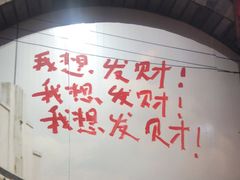 我想发财！
我想发财！
我想发财！